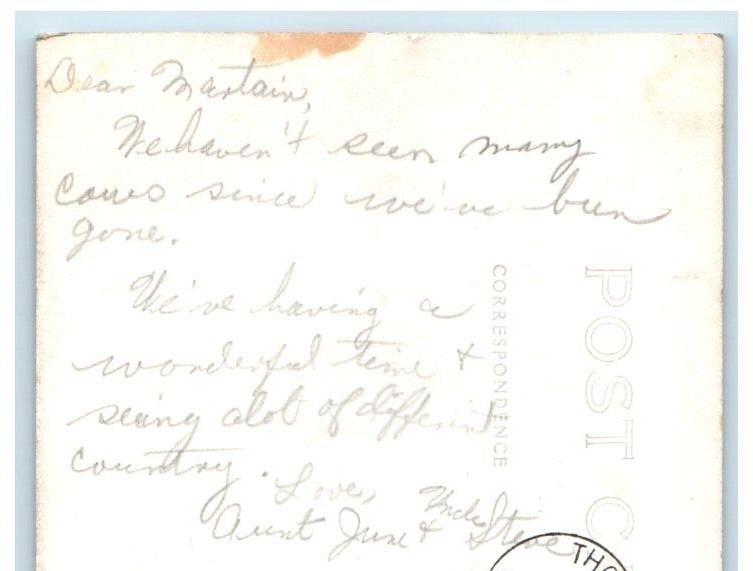 Dear Martain,
We haven't seen many
cows since we've been
gone.
We've having a
wonderful time &
seeing alot of different
country.
Love,
Aunt June & Uncle Steve
CORRESPONDENCE
POST C
THO